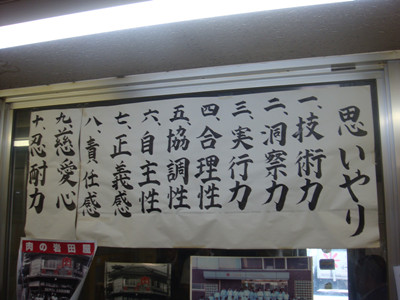 思いやり
一、技術力
二、洞察力
三、実行力
四、合理性
五、協調性
六、自主性
七、正義感
八、責任感
九、慈愛心
十、忍耐力
肉の岩田屋